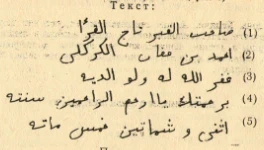 Текст:
(1) صاحب القبر تاج القرّا
(2) احمد بن مقاب الكركلى
(3) غفر الله له ولوالديه
(4) برحمتك ياارحم الراحمين سنته
(5) اثنى و شمانين خمس مائه